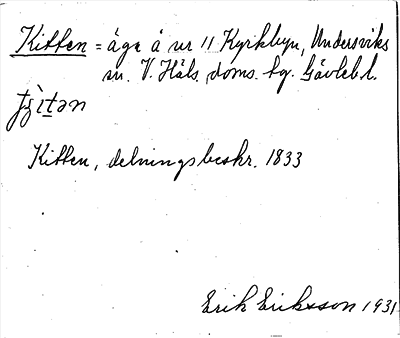 Kitten = äga å nr 11 Kyrkbyn, Undersviks
sn. V. Häls. doms. tg. Gävlebl.
Kitten, delningsbeskr. 1833
Erik Eriksson 1931